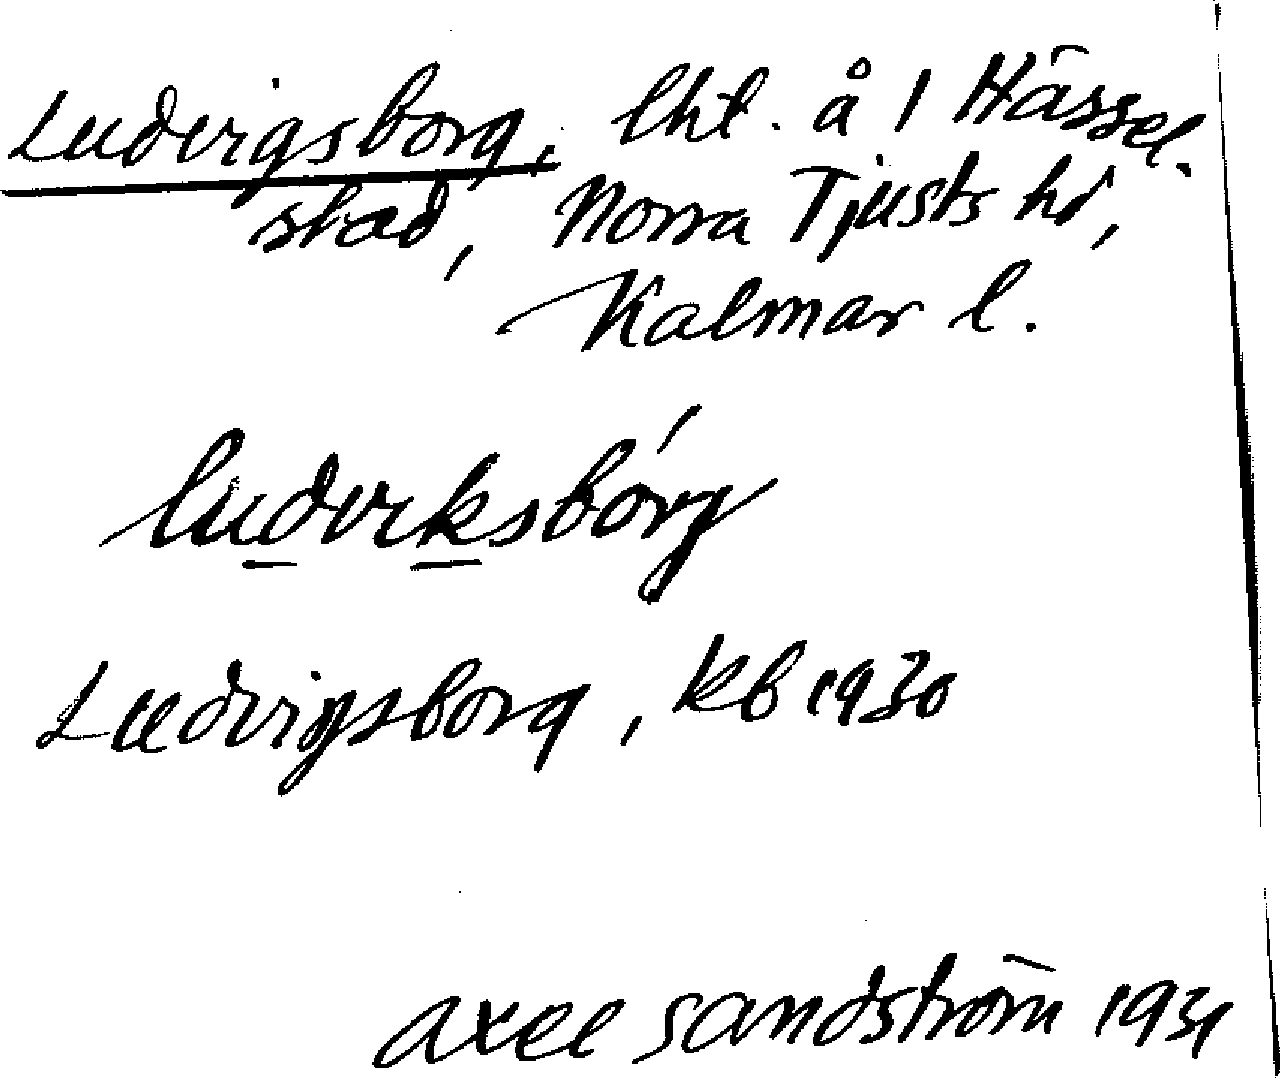 Ludvigsborg, lht. å 1 Hässel-
stad, Norra Tjusts hd,
Kalmar l.
luderksbórg
Ludvigsborg, kb 1930
Axel Sandström 1931